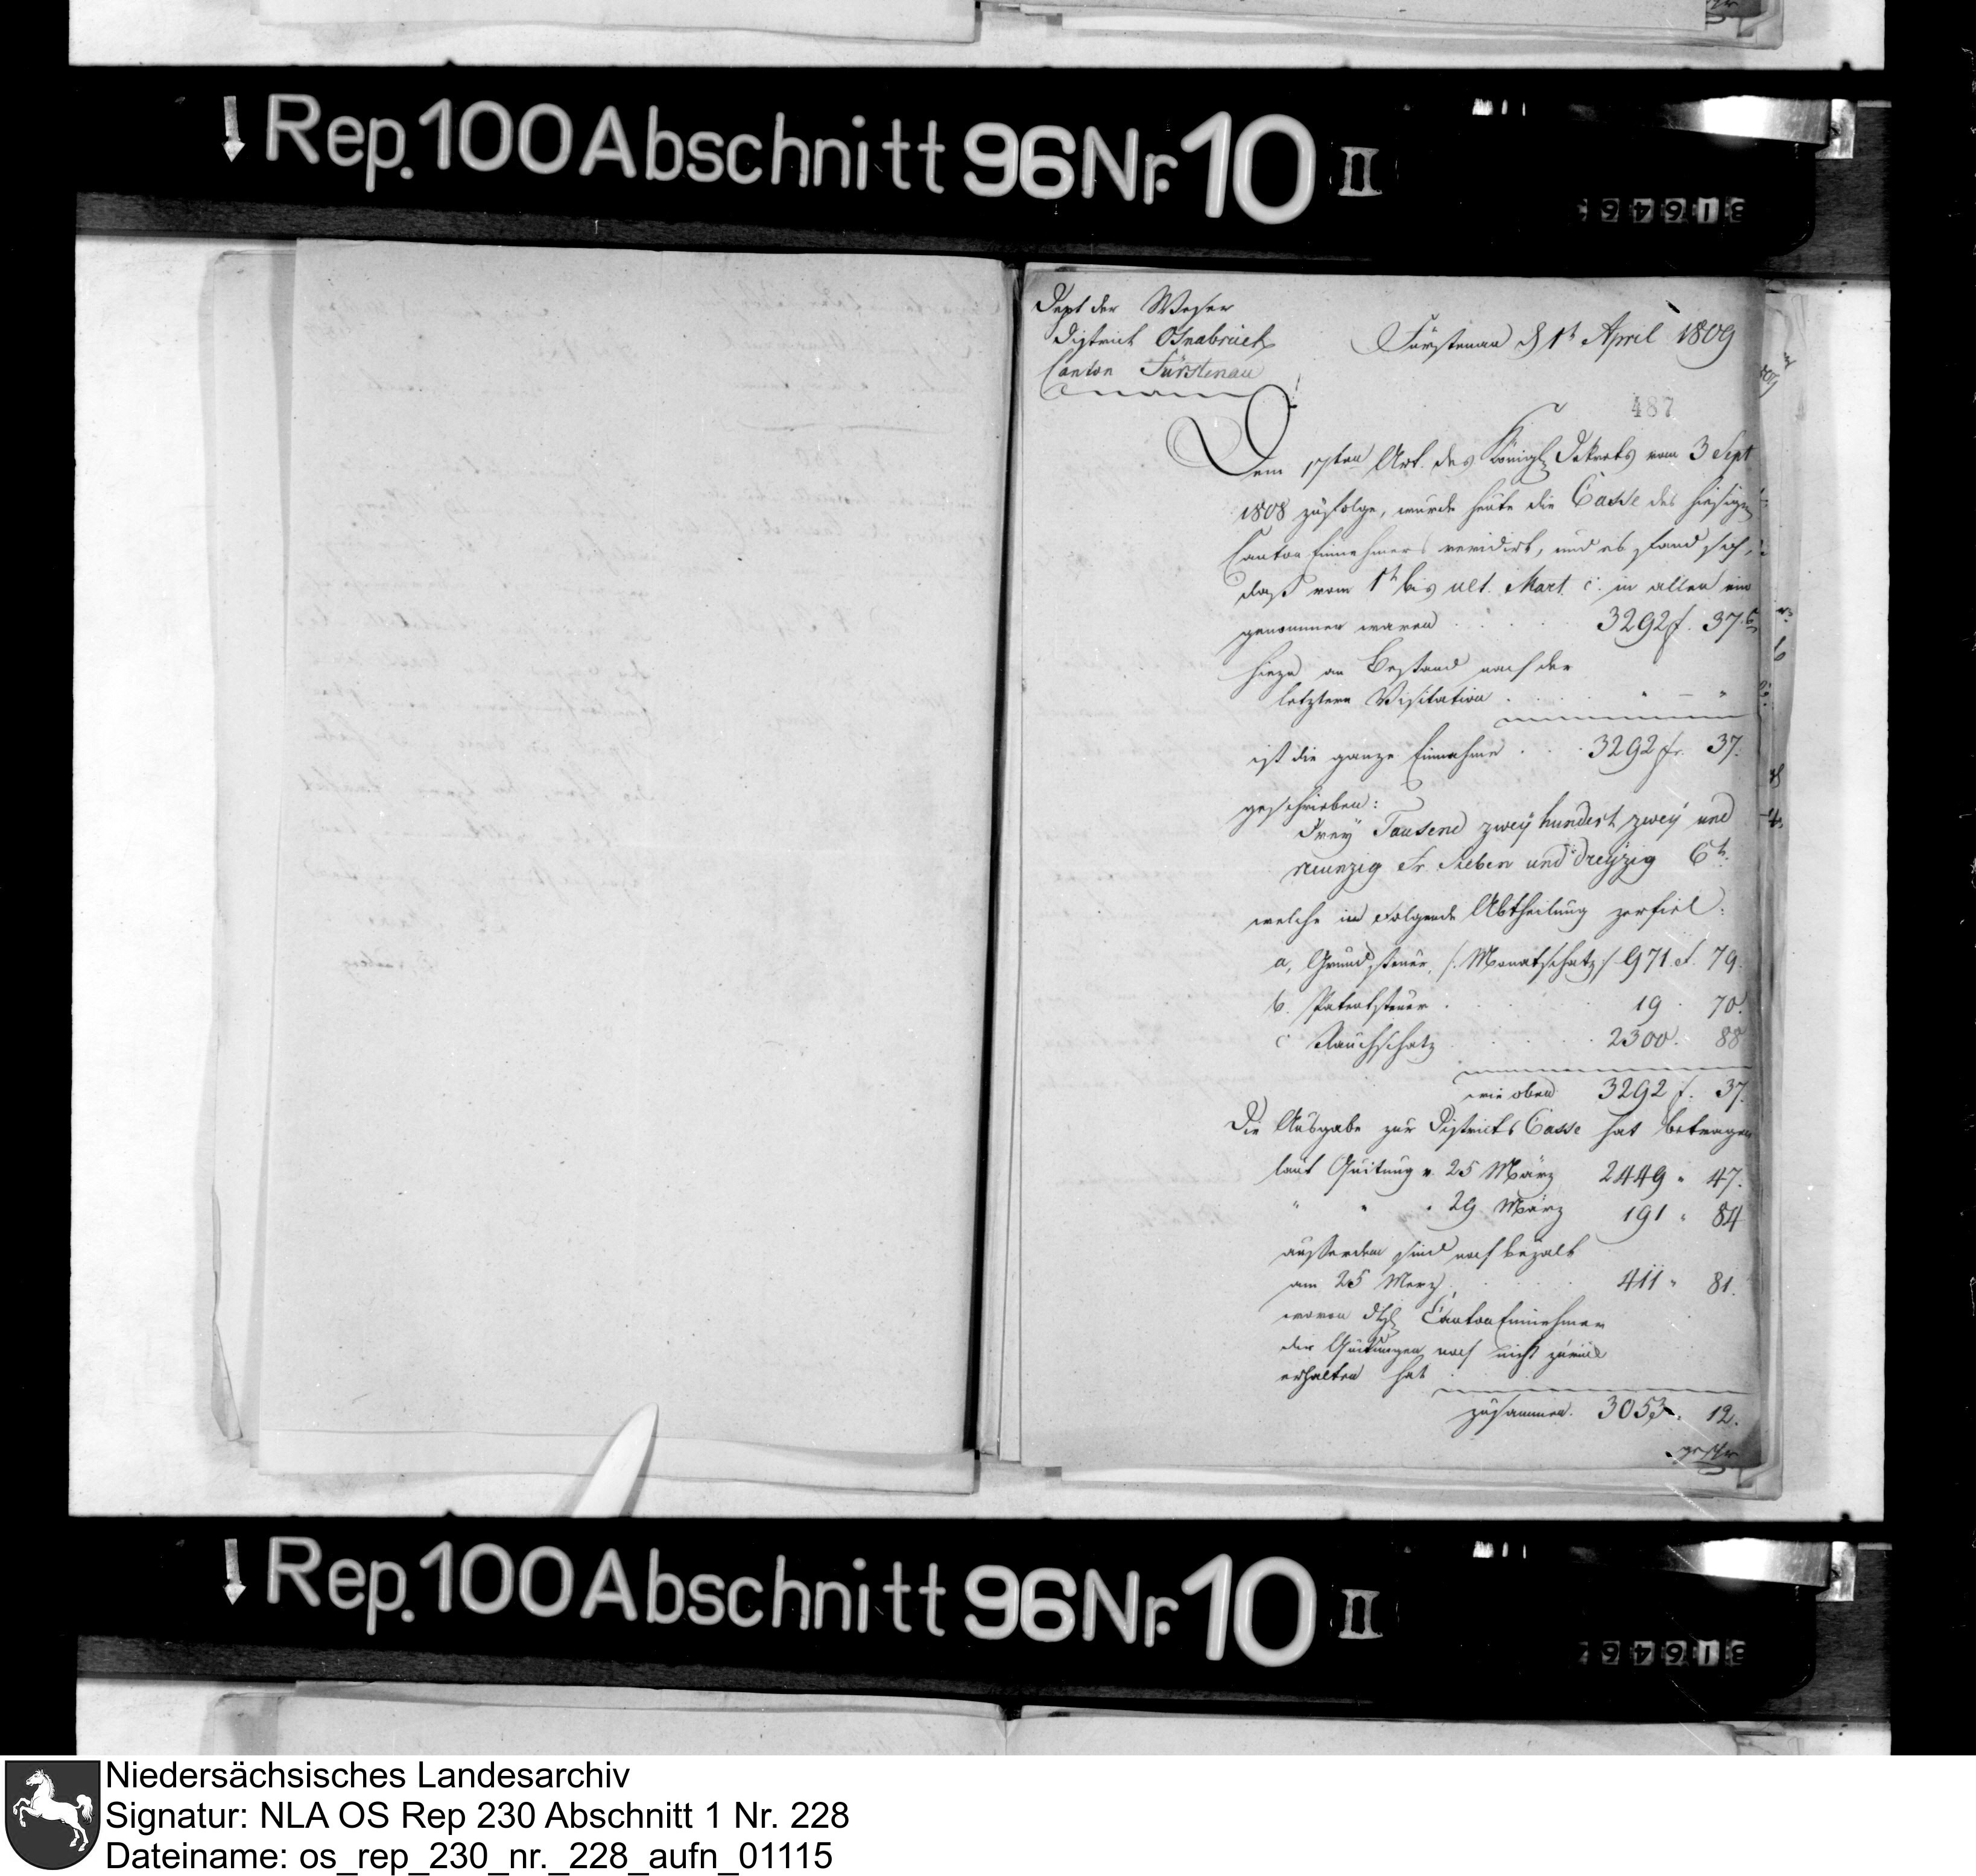 Rep. 100 Abschnitt 96 Nr. 10 II
Dept der Weser
District Osnabrück
Canton Fürstenau
Fürstenau d 1t April 1809
487
Dem 17ten Art. des Königl Dekrets vom 3 Sept
1808 zufolge, wurde heute die Casse des hiesigen
Canton Einnehmers revidirt, und es fand sich,
daß vom 1t bis ult. Mart. c. in allen ein
genommen waren 3292 f. 37 c
hiezu an Bestand nach der
letztern Visitation " — "
ist die ganze Einnahme 3292 fr. 37.
geschrieben:
Drey Tausend zwey hundert zwey und
neunzig Fr. Sieben und dreyzig Ct.
welche in folgende Abtheilung zerfiel:
a, Grundsteuer, /: Monatschatz :/ 971 f. 79.
b. Patentsteuer 19 70.
c Rauchschatz 2300. 88
wie oben 3292 f. 37.
Die Ausgabe zur Districts Casse hat betragen
laut Quitung v. 25 März 2449 " 47.
" " " 29 März 191 " 84
außerdem sind noch bezalt
am 25 Merz 411 " 81.
wovon Canton Einnehmer
die Quitungen noch nicht zurück
erhalten hat
zusammen. 3053. 12.
geschr
Rep. 100 Abschnitt 96 Nr. 10 II
Niedersächsisches Landesarchiv
Signatur: NLA OS Rep 230 Abschnitt 1 Nr. 228
Dateiname: os_rep_230_nr._228_aufn_01115